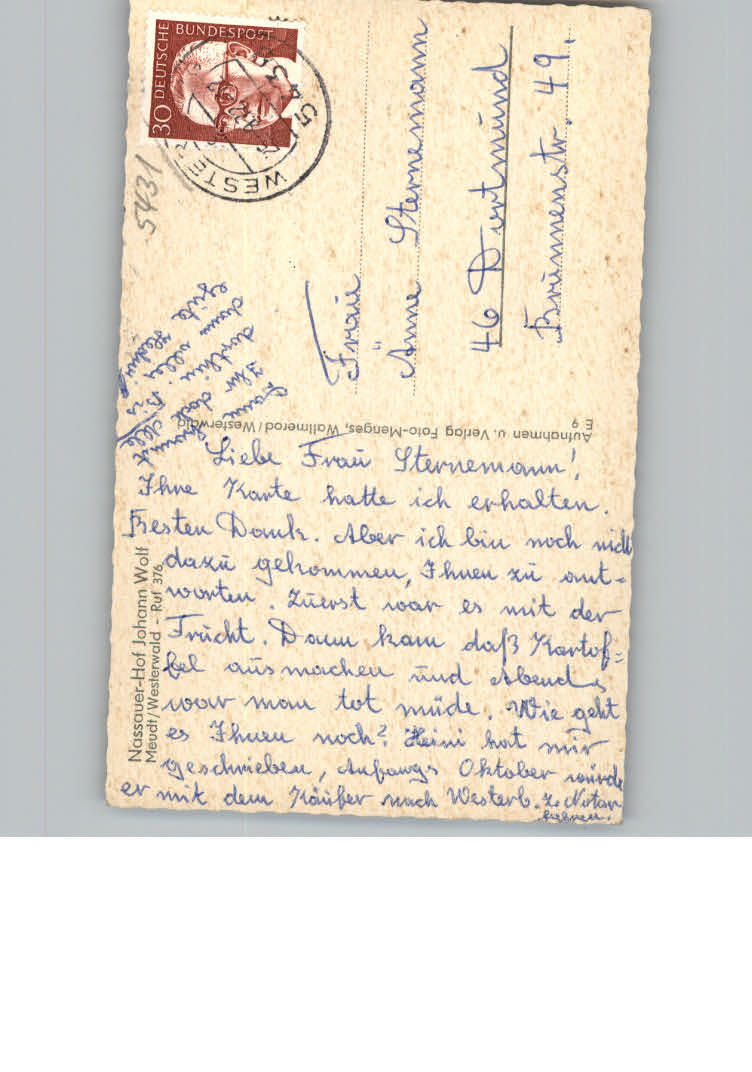 30 DEUTSCHE BUNDESPOST
543
WESTER
5431
Frau
Änne Sternemann
46 Dortmund
Brunnenstr. 49.
Aufnahmen u. Verlag Foto-Menges, Wallmerod/Westerwald
E 9
Nassauer-Hof Johann Wolf
Meudt/Westerwald - Ruf 376
Liebe Frau Sternemann!
Ihre Karte hatte ich erhalten.
Besten Dank. Aber ich bin noch nicht
dazu gekommen, Ihnen zu ant-
worten. Zuerst war es mit der
Frucht. Dann kam daß Kartof=
fel ausmachen und Abends
war man tot müde. Wie geht
es Ihnen noch? Heini hat mir
geschrieben, Anfangs Oktober würde
er mit dem Käufer nach Westerb. z. Notar
fahren.
Dann
Ihr doch
dorthin
dann alles
Gute
Hedwig